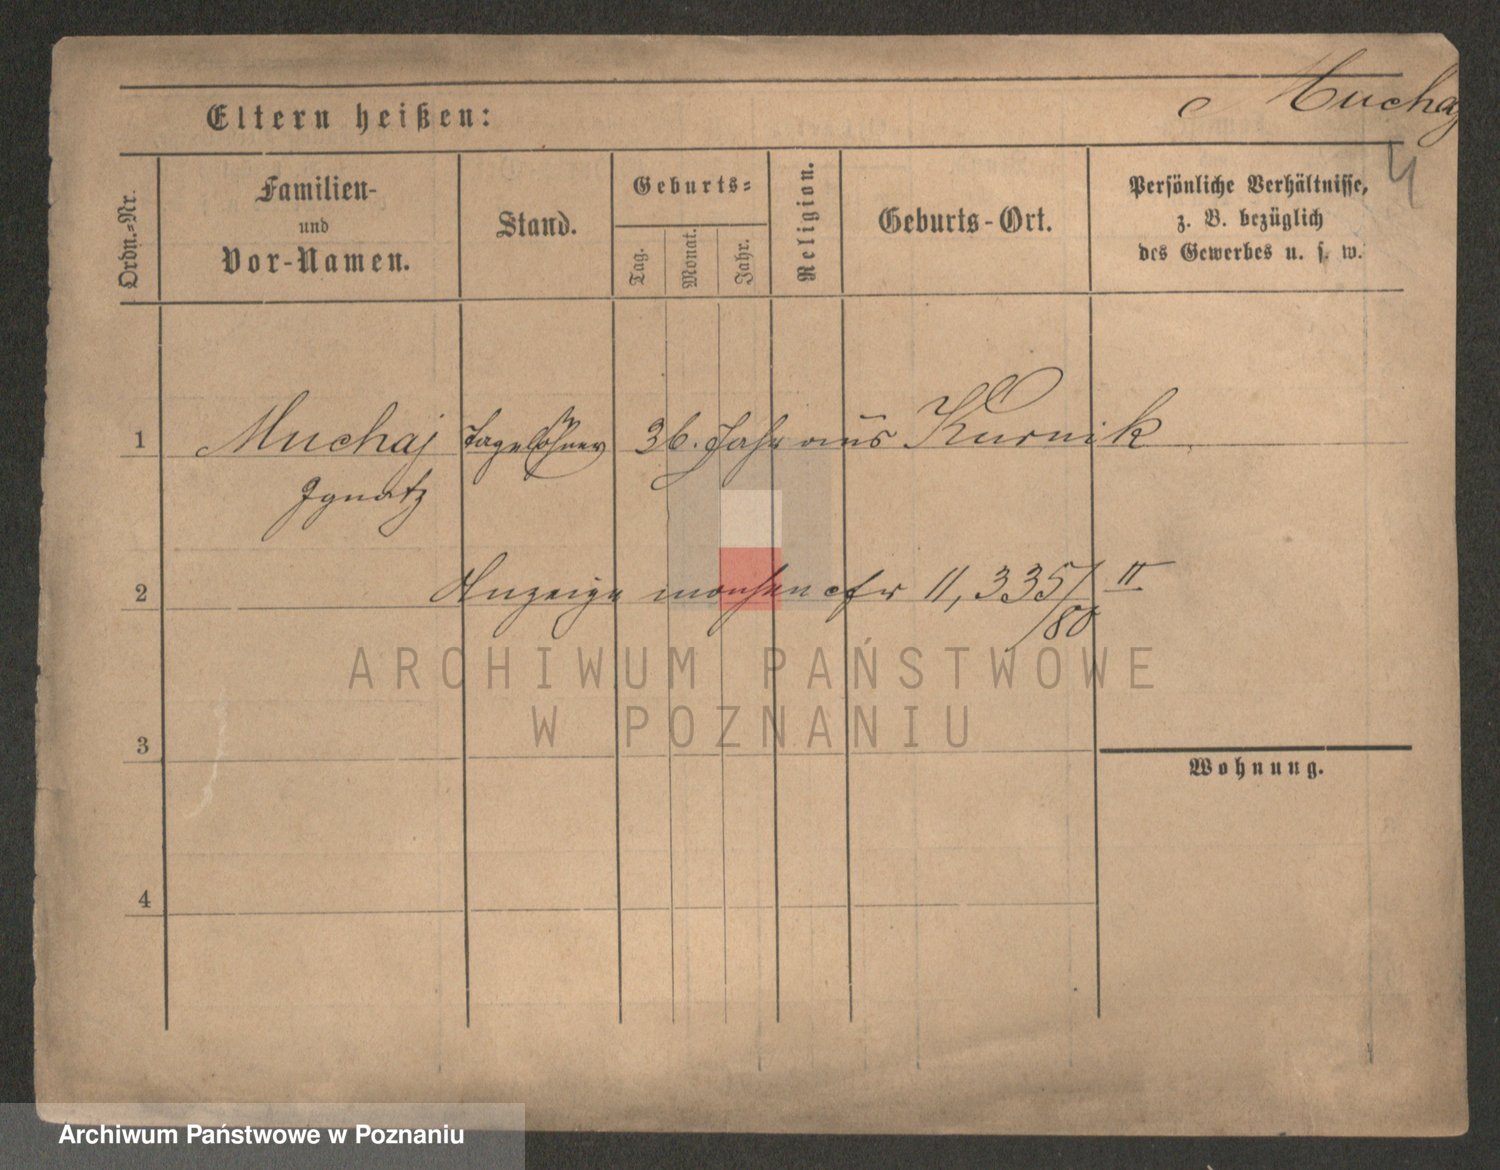 Muchaj
Eltern heißen:
4
Ordn.-Nr.
Familien-
und
Vor-Namen.
Stand.
Geburts-
Tag.
Monat.
Jahr.
Religion.
Geburts-Ort.
Persönliche Verhältnisse,
z. B. bezüglich
des Gewerbes u. s. w.
1 Muchaj Tagelöhner 36. Jahr aus Kurnik
Ignatz
2 Anzeige cfr II, 335/80 II
ARCHIWUM PAŃSTWOWE
W POZNANIU
3
Wohnung.
4
Archiwum Państwowe w Poznaniu